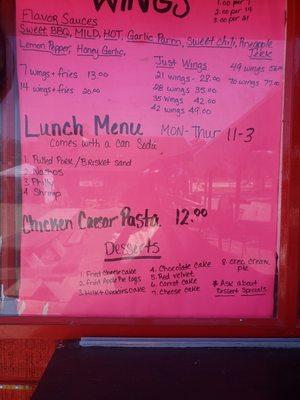 WINGS
1.00 per 7
2.00 per 14
3.00 per 21
Flavor Sauces
Sweet BBQ, MILD, HOT, Garlic Parm, Sweet chili, Pineapple
Lemon Pepper, Honey Garlic,
Just Wings
7 wings + fries 13.00
14 wings + fries 20.00
21 wings - 28.00
28 wings 35.00
35 wings 42.00
42 wings 49.00
49 wings
70 wings 77.00
Lunch Menu MON-Thur 11-3
comes with a can Soda
1 Pulled Pork / Brisket sand
2 Nachos
3 Philly
4 Shrimp
Chicken Caesar Pasta 12.00
Desserts
1. Fried Cheesecake
2. Fried Apple Pie Logs
3. Milk & Cookies Cake
4. Chocolate Cake
5. Red velvet
6. Carrot cake
7. Cheese cake
8. oreo cream
pie
* Ask about
Dessert Specials